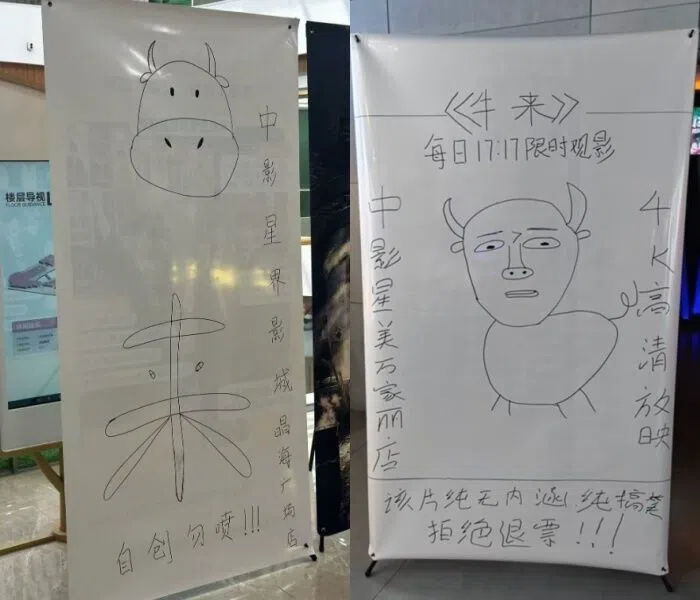 楼层导视
FLOOR GUIDANCE
中影星界影城晶海广场店
来
自创勿喷!!!
《牛来》
每日17:17限时观影
中影星美万家丽店
4K高清放映
该片纯无内涵,纯搞笑
拒绝退票!!!